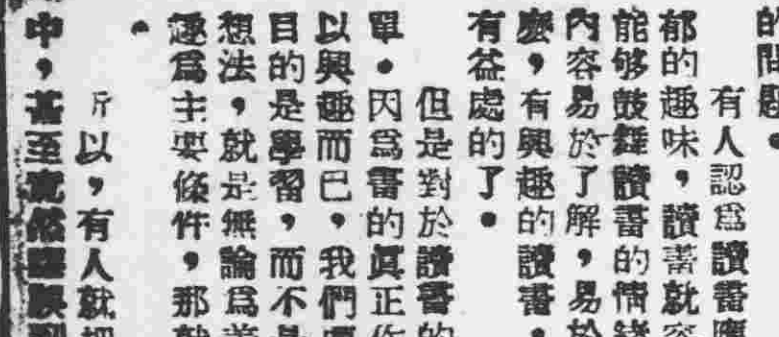 的問題。
有人認爲讀書應
郁的趣味，讀書就容
能够鼓舞讀書的情緒
内容易於了解，易於
麽，有興趣的讀書，
有益處的了。
但是對於讀書的
單。因爲書的眞正作
以興趣而已，我們
目的是學習，而不是
想法，就是無論爲
趣爲主要條件，那就
。
所以，有人就把
中，甚至竟然